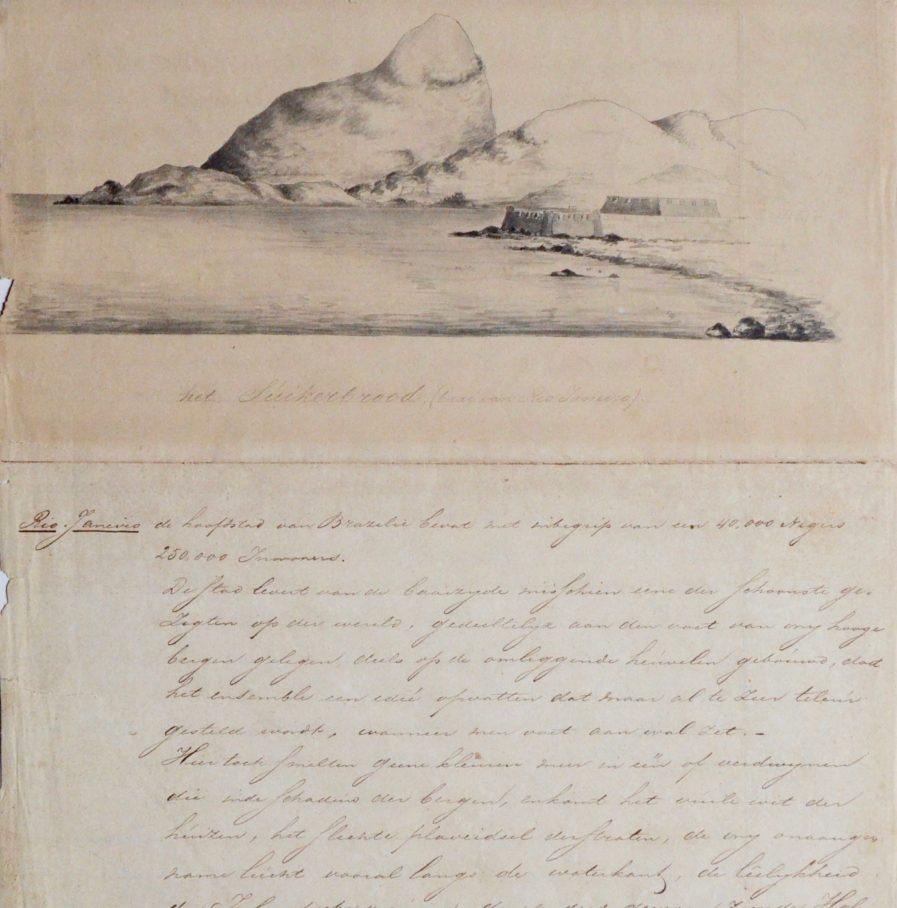 het Suikerbrood (baai van Rio Janeiro)
Rio Janeiro de hoofdstad van Brazelie bevat met inbegrip van een 40,000 Negers
250,000 Inwoners.
De stad levert van de baaizyde misschien eene der schoonste ge-
zigten op der wereld, gedeeltelyk aan den voet van vry hooge
bergen gelegen deels op de omliggende heuvelen gebouwd, doet
het ensemble een idié opvatten dat maar al te zeer teleur
gesteld wordt, wanneer men voet aan wal zet. -
Hier toch smelten geene kleuren meer in één of verdwynen
die in de schaduw der bergen, enkomt het vuile wit der
huizen, het slechte plaveidsel der straten, de vry onaange-
name lucht vooral langs de waterkant, de leelykheid